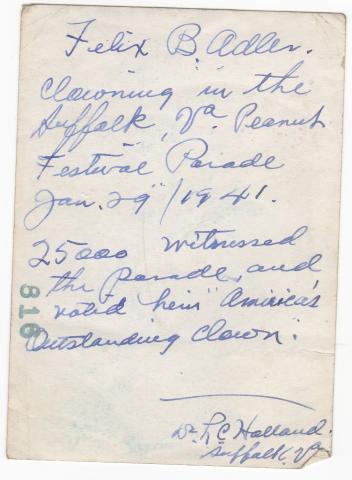 Felix B. Adler.
Clowning in the
Suffolk, Va. Peanut
Festival Parade
Jan. 29" / 1941.
25000 witnessed
the parade, and
voted him "America's
Outstanding Clown".
Dr. L.C. Holland.
Suffolk, Va
816